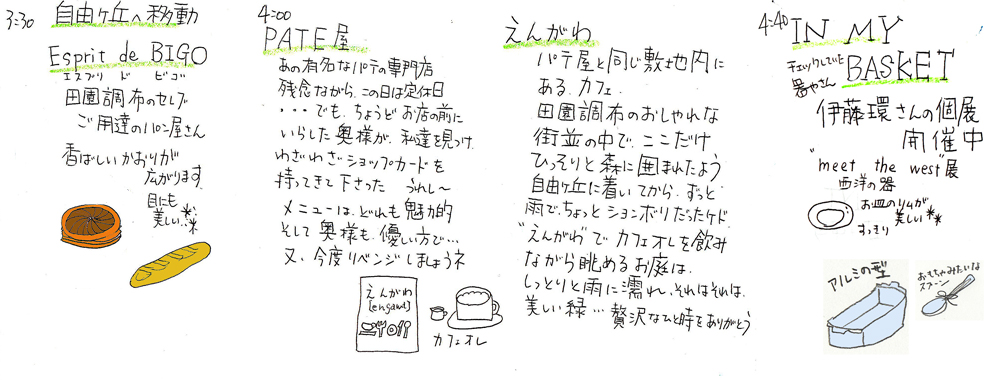 3:30 自由ヶ丘へ移動
Esprit de BIGO
エスプリ ド ビゴ
田園調布のセレブ
ご用達のパン屋さん
香ばしいかおりが
広がります
目にも
美しい
4:00
PATE屋
あの有名なパテの専門店
残念ながら、この日は定休日
・・・でも、ちょうどお店の前に
いらした奥様が、私達を見つけ、
わざわざショップカードを
持ってきて下さった うれし〜
メニューは、どれも魅力的
そして奥様も、優しい方で…
又、今度リベンジしましょうネ
えんがわ
[engawa]
カフェオレ
えんがわ
パテ屋と同じ敷地内に
ある、カフェ
田園調布のおしゃれな
街並の中で、ここだけ
ひっそりと森に囲まれたよう
自由ヶ丘に着いてから、ずっと
雨で、ちょっとションボリだったケド
"えんがわ"でカフェオレを飲み
ながら眺めるお庭は、
しっとりと雨に濡れ、それはそれは、
美しい緑… 贅沢なひと時をありがとう
4:40 IN MY
BASKET
チェックしていた
器やさん
伊藤環さんの個展
開催中
"meet the west"展
西洋の器
お皿のリムが
美しい
すっきり
アルミの型
おもちゃみたいな
スプーン